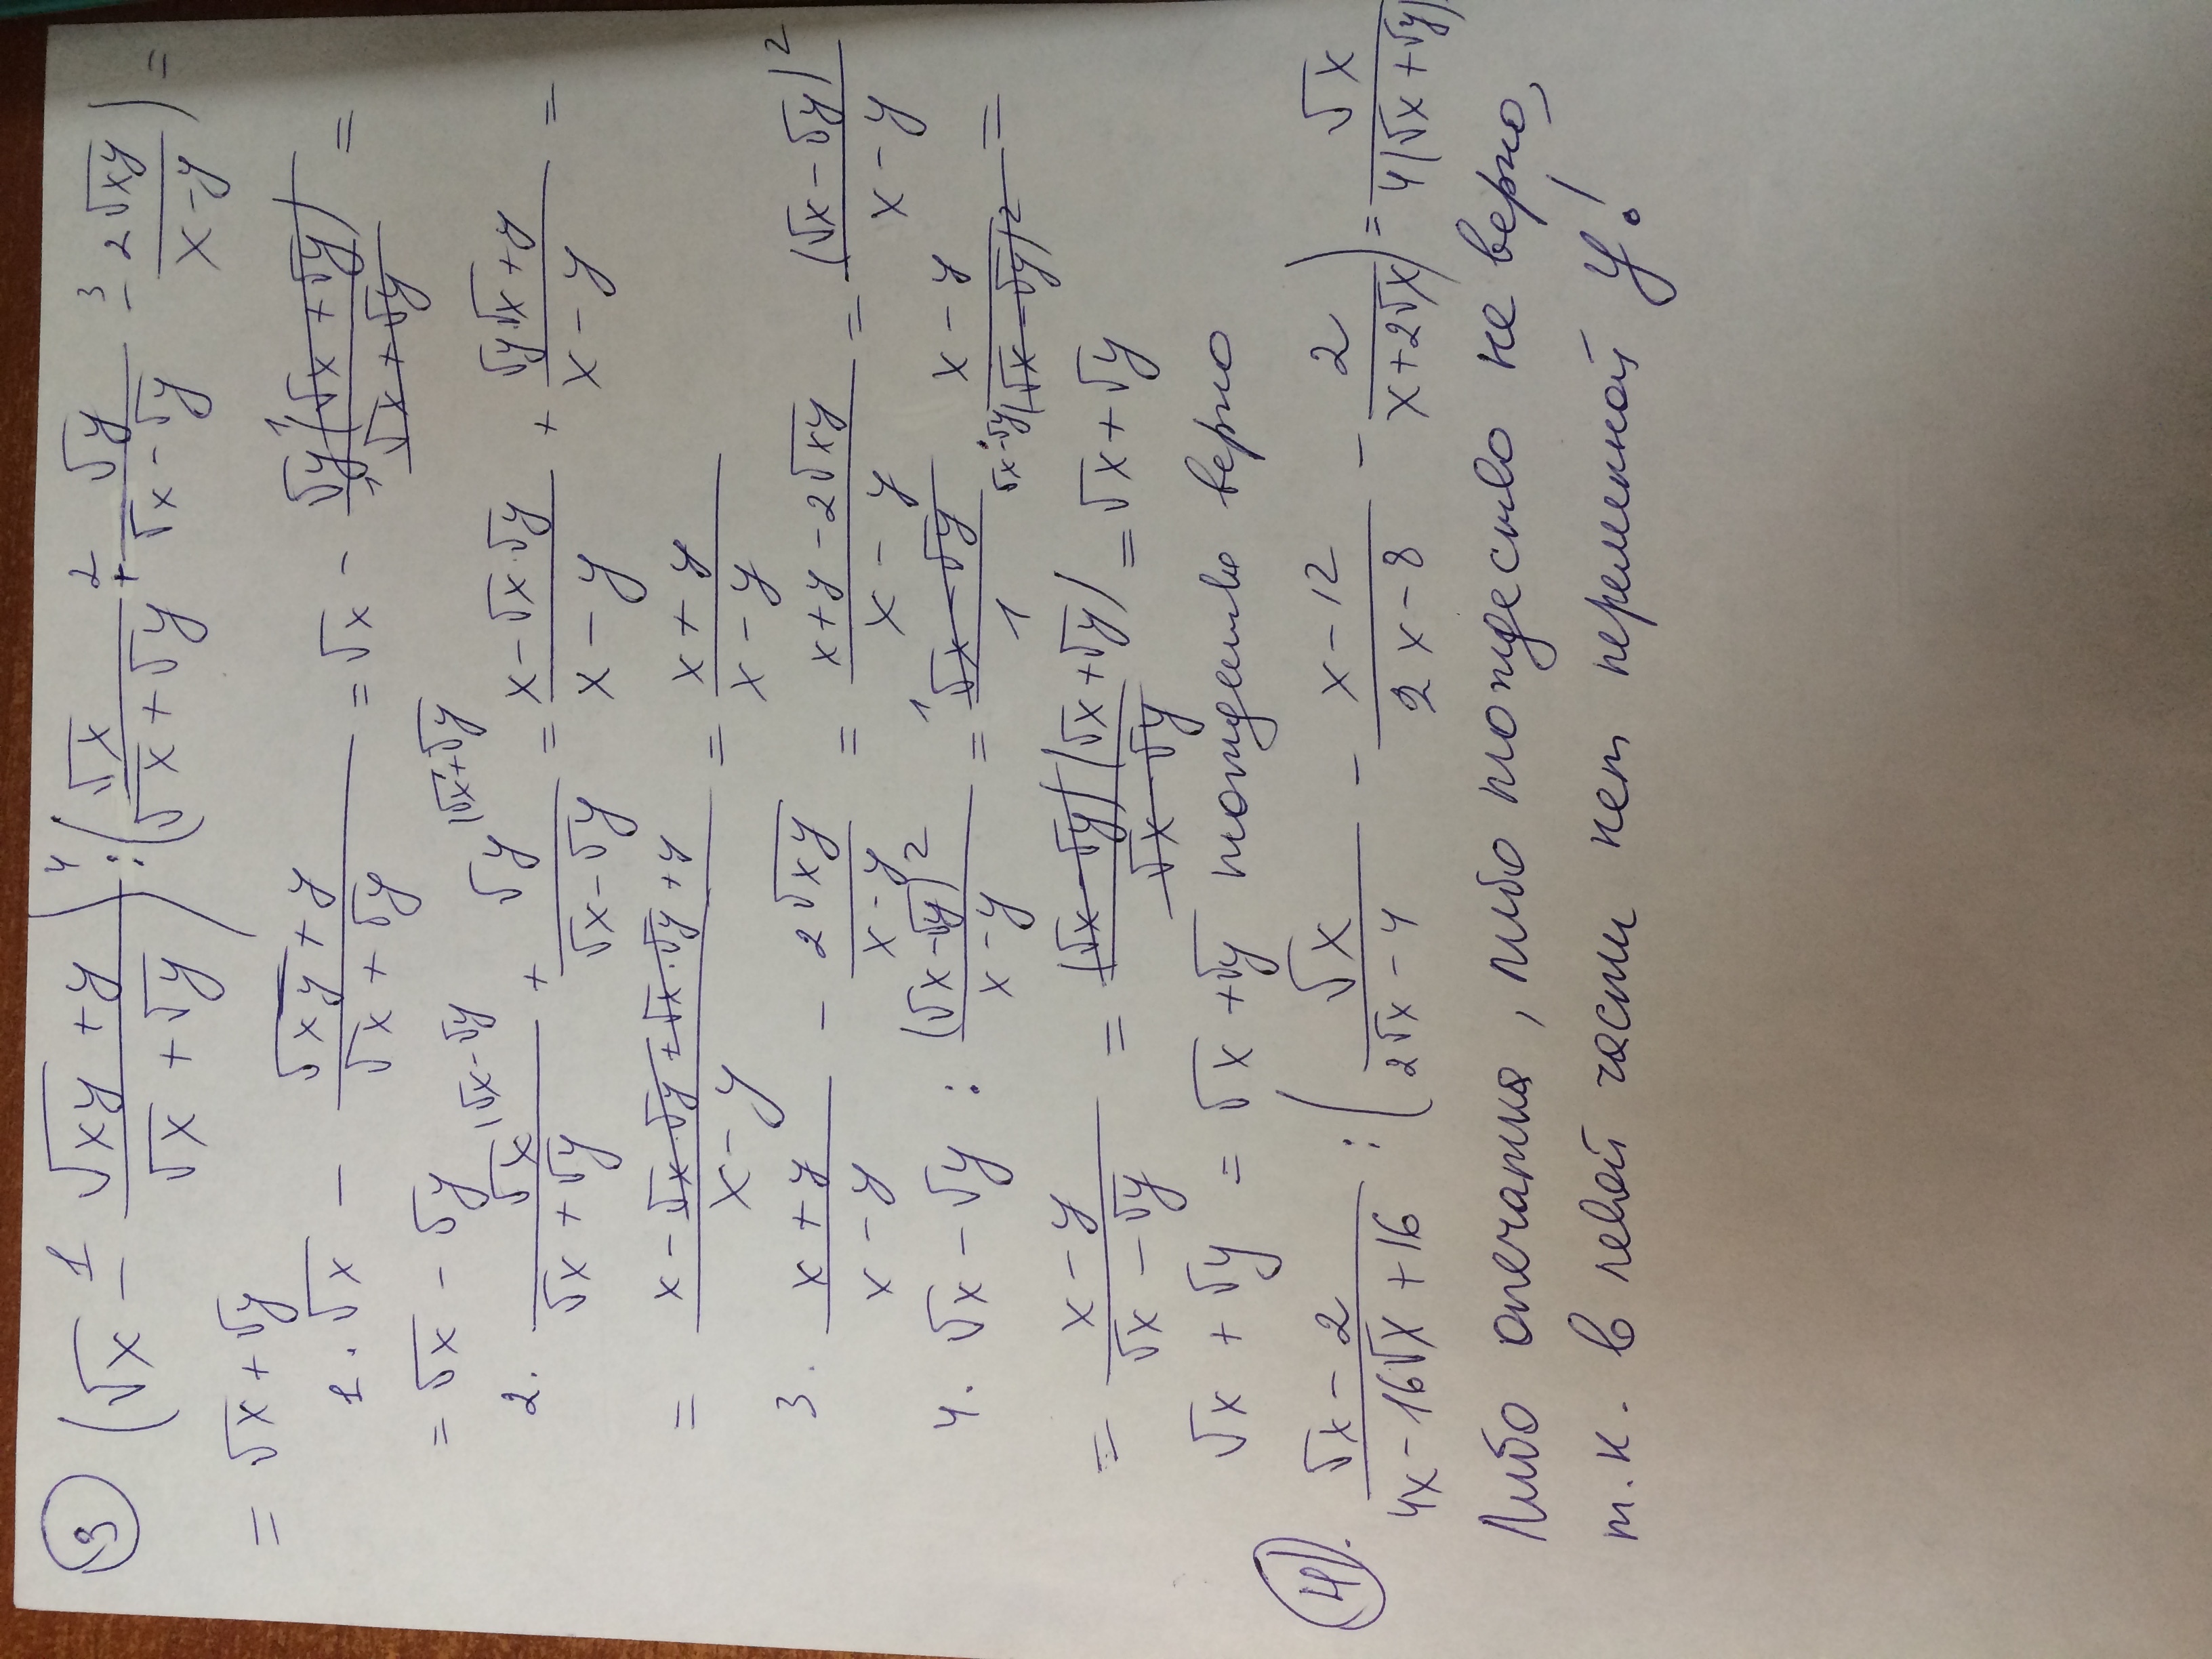 ③ (√x - (√xy + y)/(√x + √y)) : (√x/(√x + √y) + √y/(√x - √y) - 2√xy/(x - y)) =
= √x + √y
1. √x - (√xy + y)/(√x + √y) = √x - √y(√x + √y)/(√x + √y) =
= √x - √y
2. √x/(√x + √y) + √y/(√x - √y) = (x - √x·√y)/(x - y) + (√y·√x + y)/(x - y) =
= (x - √x·√y + √x·√y + y)/(x - y) = (x + y)/(x - y)
3. (x + y)/(x - y) - 2√xy/(x - y) = (x + y - 2√xy)/(x - y) = (√x - √y)²/(x - y)
4. √x - √y : (√x - √y)²/(x - y) = (√x - √y)/1 · (x - y)/(√x - √y)² =
= (x - y)/(√x - √y) = (√x - √y)(√x + √y)/(√x - √y) = √x + √y
√x + √y = √x + √y тождество верно
④. (√x - 2)/(4x - 16√x + 16) : (√x/(2√x - 4) - (x - 12)/(2x - 8) - 2/(x + 2√x)) = √x/4(√x + √y)
Либо опечатка, либо тождество не верно,
т.к. в левой части нет переменной y!